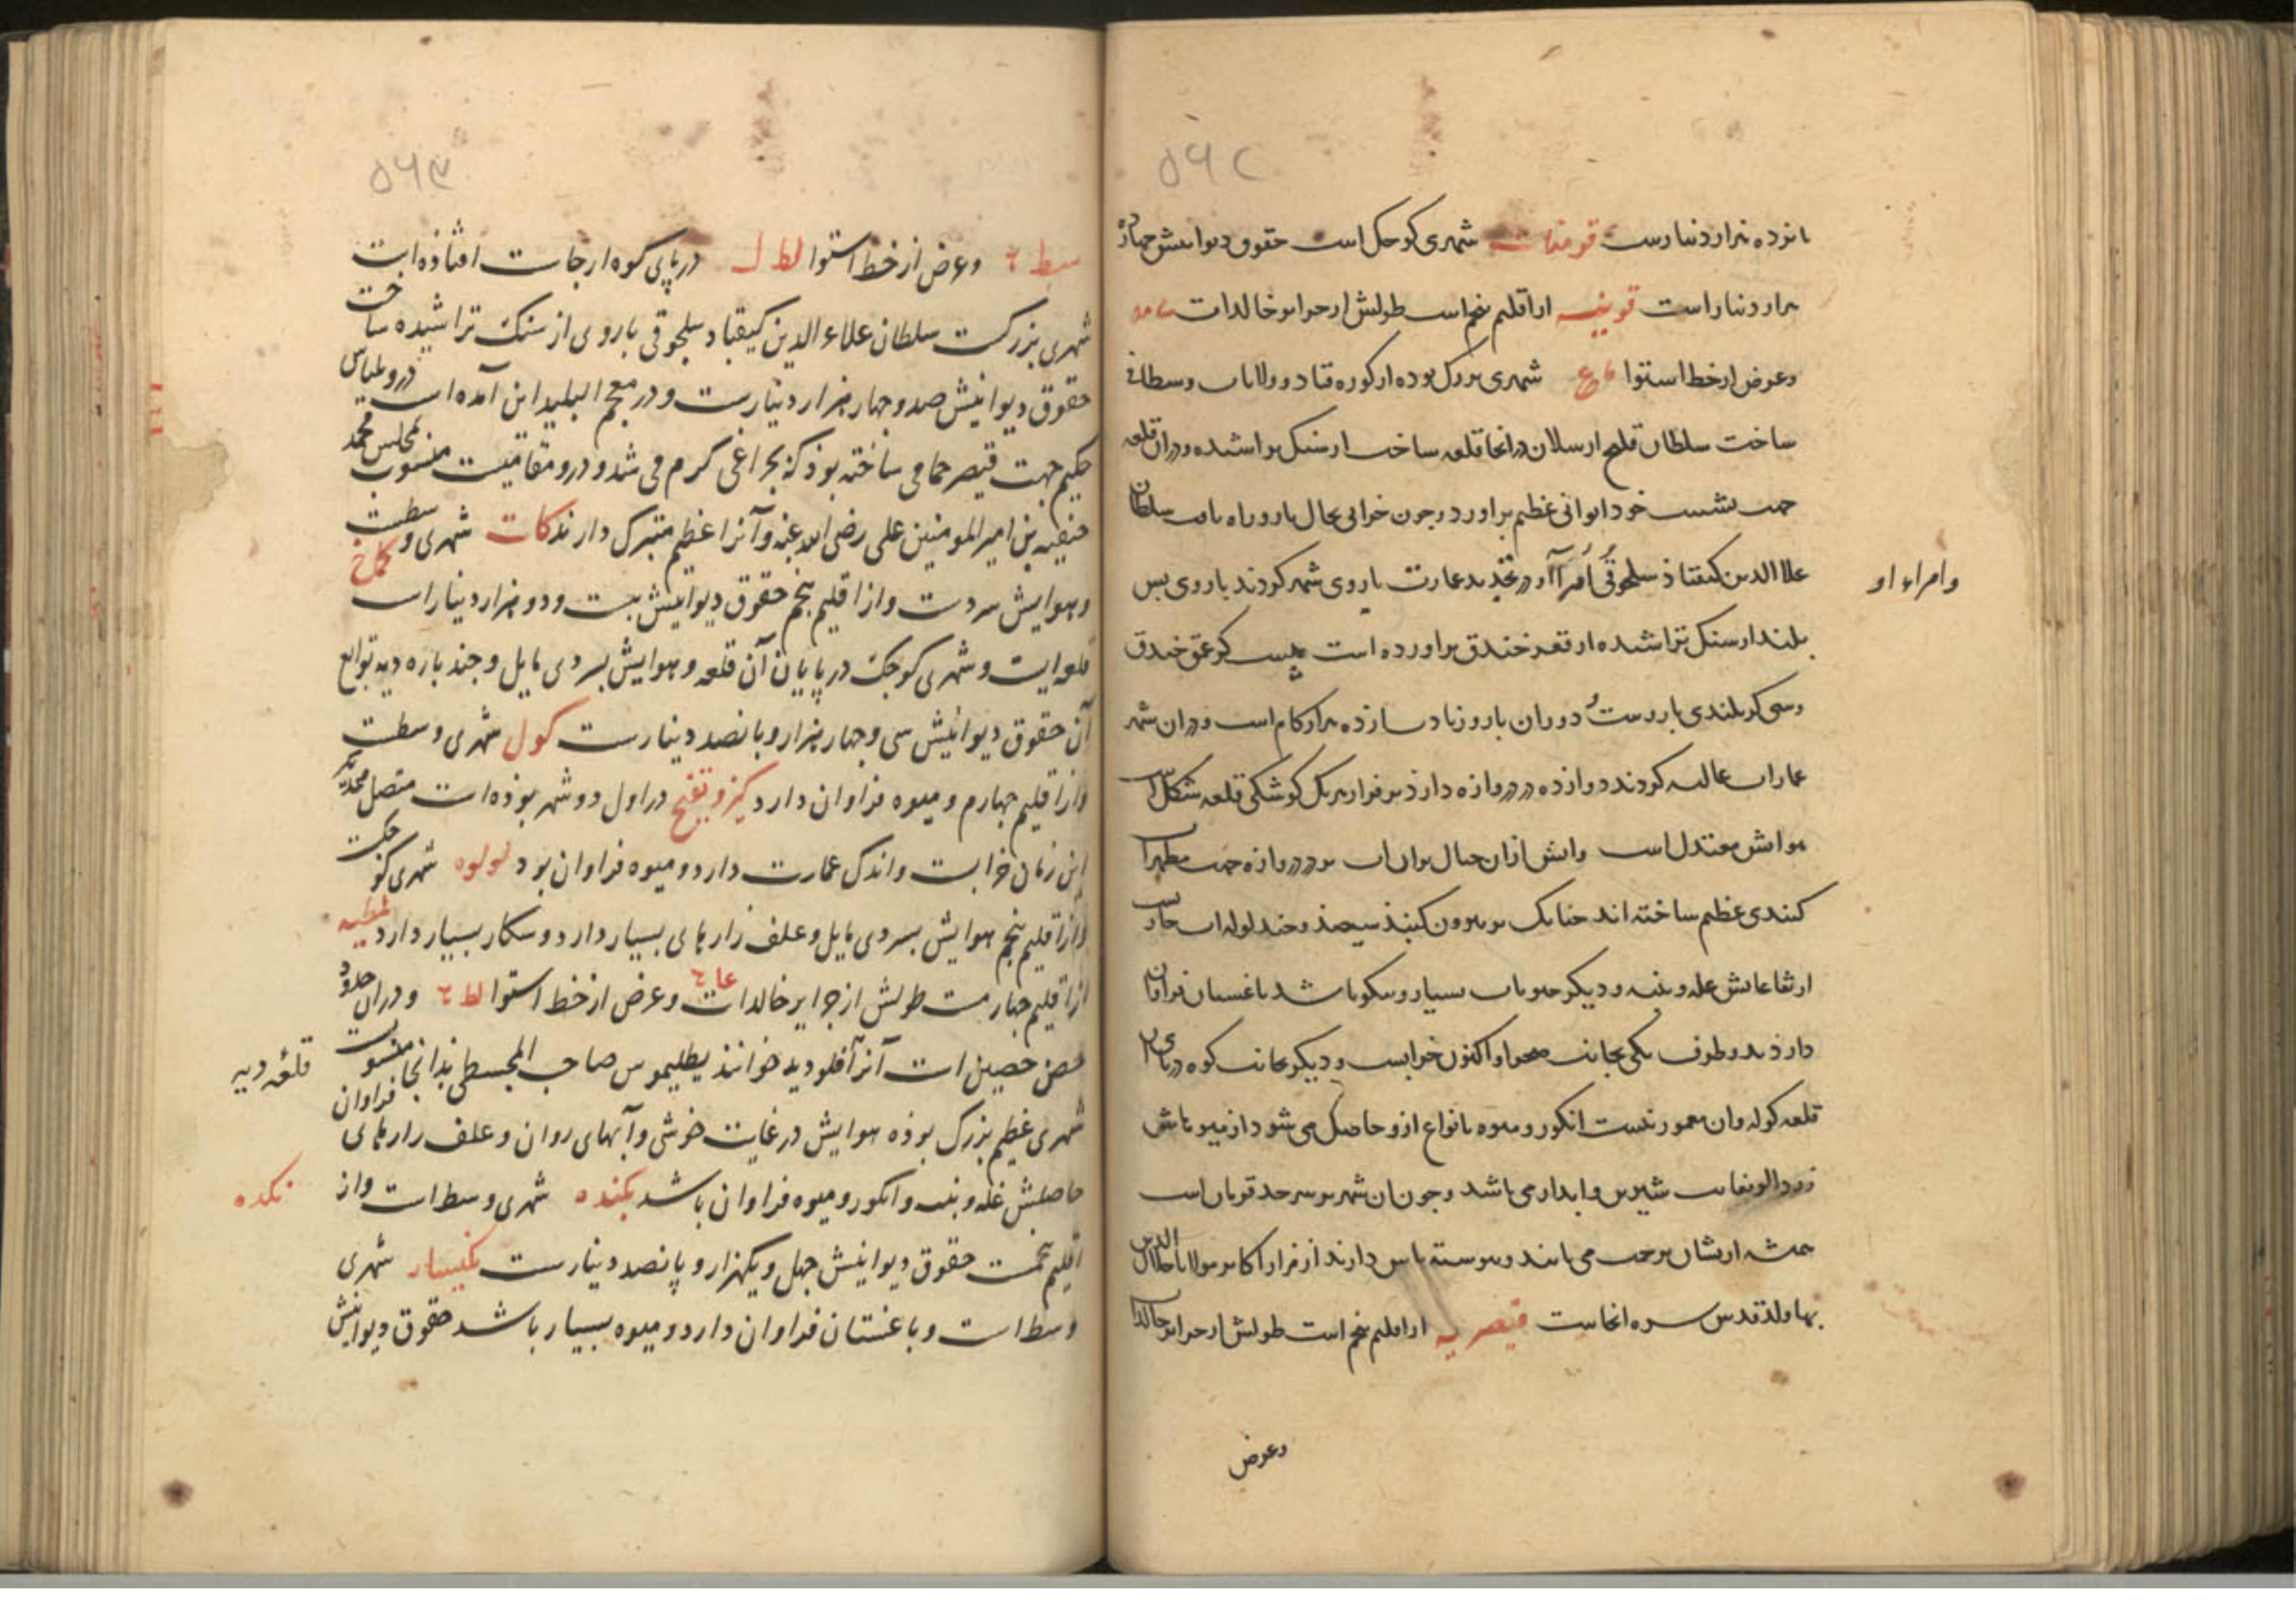 ۵۶۲
هزار دینارست قومنات شهری کوچک است حقوق دیوانیش چهارده
هزار دینار است قونیه از اقلیم پنجم است طولش از جزایر خالدات
وعرض از خط استوا شهری بزرک بوده از کوره قباد و ولایات وسطانی
ساخت سلطان قلج ارسلان در انجا قلعه ساخت از سنک تراشیده و در ان قلعه
جهت نشست خود ایوانی عظیم براورد و جون خرابی بحال بارو راه یافت سلطان
علاالدین کیقباذ سلجوقی امرا آورد تجدید عمارت باروی شهر کردند باروی بس
وامراء او
بلند از سنک تراشیده از قعر خندق براورده است بیست کز عمق خندق
وسی کز بلندی باروست دوران بارو زیادت از ده هزار کام است و در ان شهر
عمارات عالیه کردند دوازده دروازه دارد بر فراز هر یک کوشکی قلعه شکل است
هوایش معتدل است وابش ازان جبال بر ان اب بر در دروازه جهت مظهرا
کنبدی عظیم ساخته اند چنانک بر بیرون کنبذ سیصد و چند لوله اب جاریست
ارتفاعاتش غله و پنبه و دیکر حبوبات بسیار و نیکو باشد باغستان فراوان
دارذ بدو طرف یکی بجانب صحرا و اکنون خرابست و دیکر بجانب کوه در پای
قلعه کوله وان معمورتست انکور و میوه بانواع ازو حاصل می شود از میوهاش
زردالو بغایت شیرین و ابدار می باشد و جون ان شهر سرحد قرمان است
همیشه ازیشان بزحمت می باشند و پیوسته پاس دارند از مزار اکابر مولانا جلال الدین
بهاولد قدس سره انجاست قیصریه از اقلیم پنجم است طولش از جزایر خالدات
وعرض
۵۶۳
سط وعرض از خط استوا لط ل در پای کوه ارجاست افتاذه است
شهری بزرکست سلطان علاء الدین کیقباد سلجوقی باروی از سنک تراشیده ساخت
حقوق دیوانیش صد و چهار هزار دینارست و در معجم البلدان این آمده است در و بلیناس
حکیم جهت قیصر حمامی ساخته بوذ که بچراغی کرم می شد و درو مقامیست منسوب بمجلس محمد
حنفیه بن امیر المومنین علی رضی الله عنه وآنرا عظیم متبرک دارند کات شهری وسطست
وهوایش سردست و از اقلیم پنجم حقوق دیوانیش بیست و دو هزار دینار است کماخ
قلعه ایست و شهری کوچک در پایان آن قلعه و هوایش بسردی مایل و چند پاره دیه توابع
آن حقوق دیوانیش سی و چهار هزار و پانصد دینارست کول شهری وسطست
واز اقلیم چهارم و میوه فراوان دارد کیز و بقیج در اول دو شهر بوذه است متصل
این زمان خرابست و اندک عمارت دارد و میوه فراوان بود لولوه شهری کوچکست
واز اقلیم پنجم هوایش بسردی مایل و علف زارهای بسیار دارد و شکار بسیار دارد ملطیه
از اقلیم چهارمست طولش از جزایر خالدات عا و عرض از خط استوا لط و در ان حدود
حصن حصین است آنرا فلوذیه خوانند بطلیموس صاحب المجسطی بدانجا منسوبست
قلعه دیه
شهری عظیم بزرک بوذه هوایش در غایت خوشی وآبهای روان و علف زارهای فراوان
حاصلش غله و پنبه و انکور و میوه فراوان باشد بکنده شهری وسط است و از
نکده
اقلیم پنجمست حقوق دیوانیش چهل و یکهزار و پانصد دینارست نکیسار شهری
وسط است و باغستان فراوان دارد و میوه بسیار باشد حقوق دیوانیش